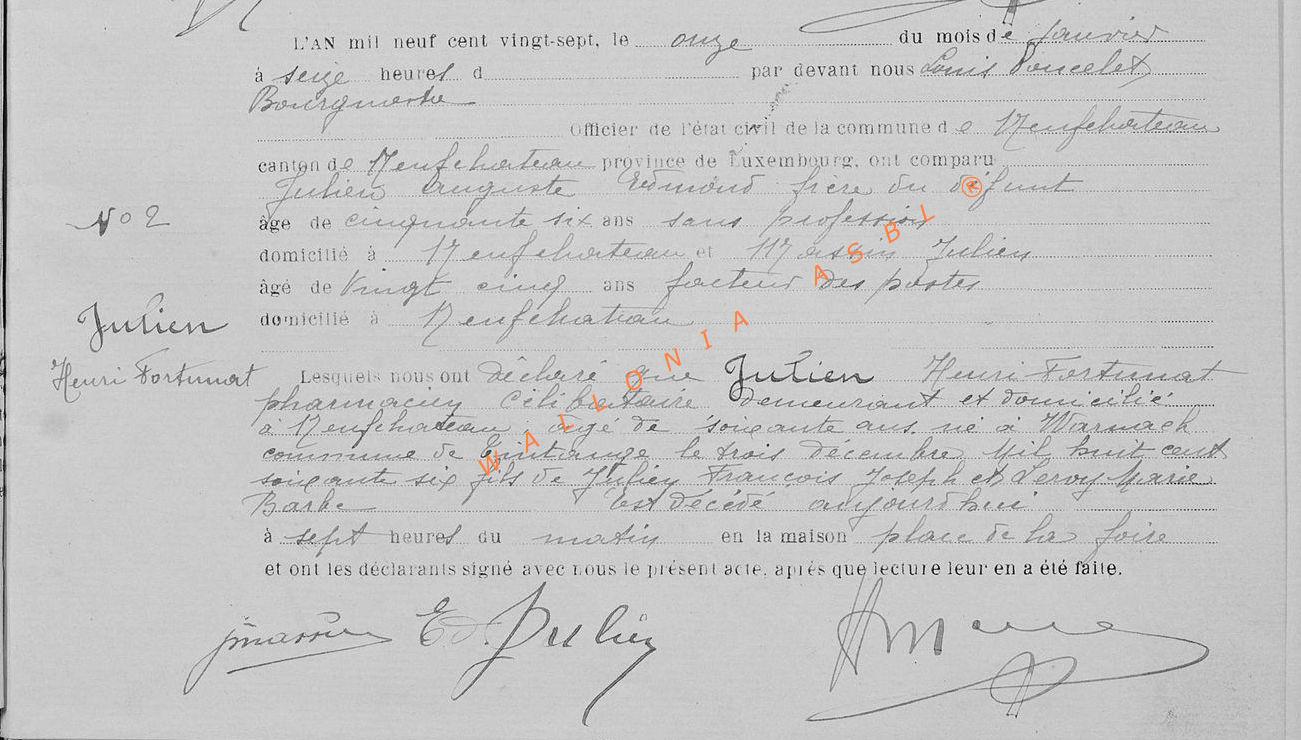 L'AN mil neuf cent vingt-sept, le onze du mois de janvier
à seize heures d par devant nous Louis Poncelet
Bourgmestre
Officier de l'état civil de la commune de Neufchateau
canton de Neufchateau province de Luxembourg, ont comparu
Julien Auguste Edmond frère du défunt
âge de cinquante six ans sans profession
No 2
domicilié à Neufchateau et Massin Julien
âgé de Vingt cinq ans facteur des postes
Julien
domicilié à Neufchateau
Henri Fortunat
Lesquels nous ont déclaré que Julien Henri Fortunat
pharmacien célibataire demeurant et domicilié
à Neufchateau, âgé de soixante ans né à Warnach
commune de Tintange le trois décembre mil huit cent
soixante six fils de Julien François Joseph et Leroy Marie
Barbe Est décédé aujourd'hui
à sept heures du matin en la maison place de la foire
et ont les déclarants signé avec nous le présent acte, après que lecture leur en a été faite.
JMassin Ed Julien
WALLONIA ASBL ®